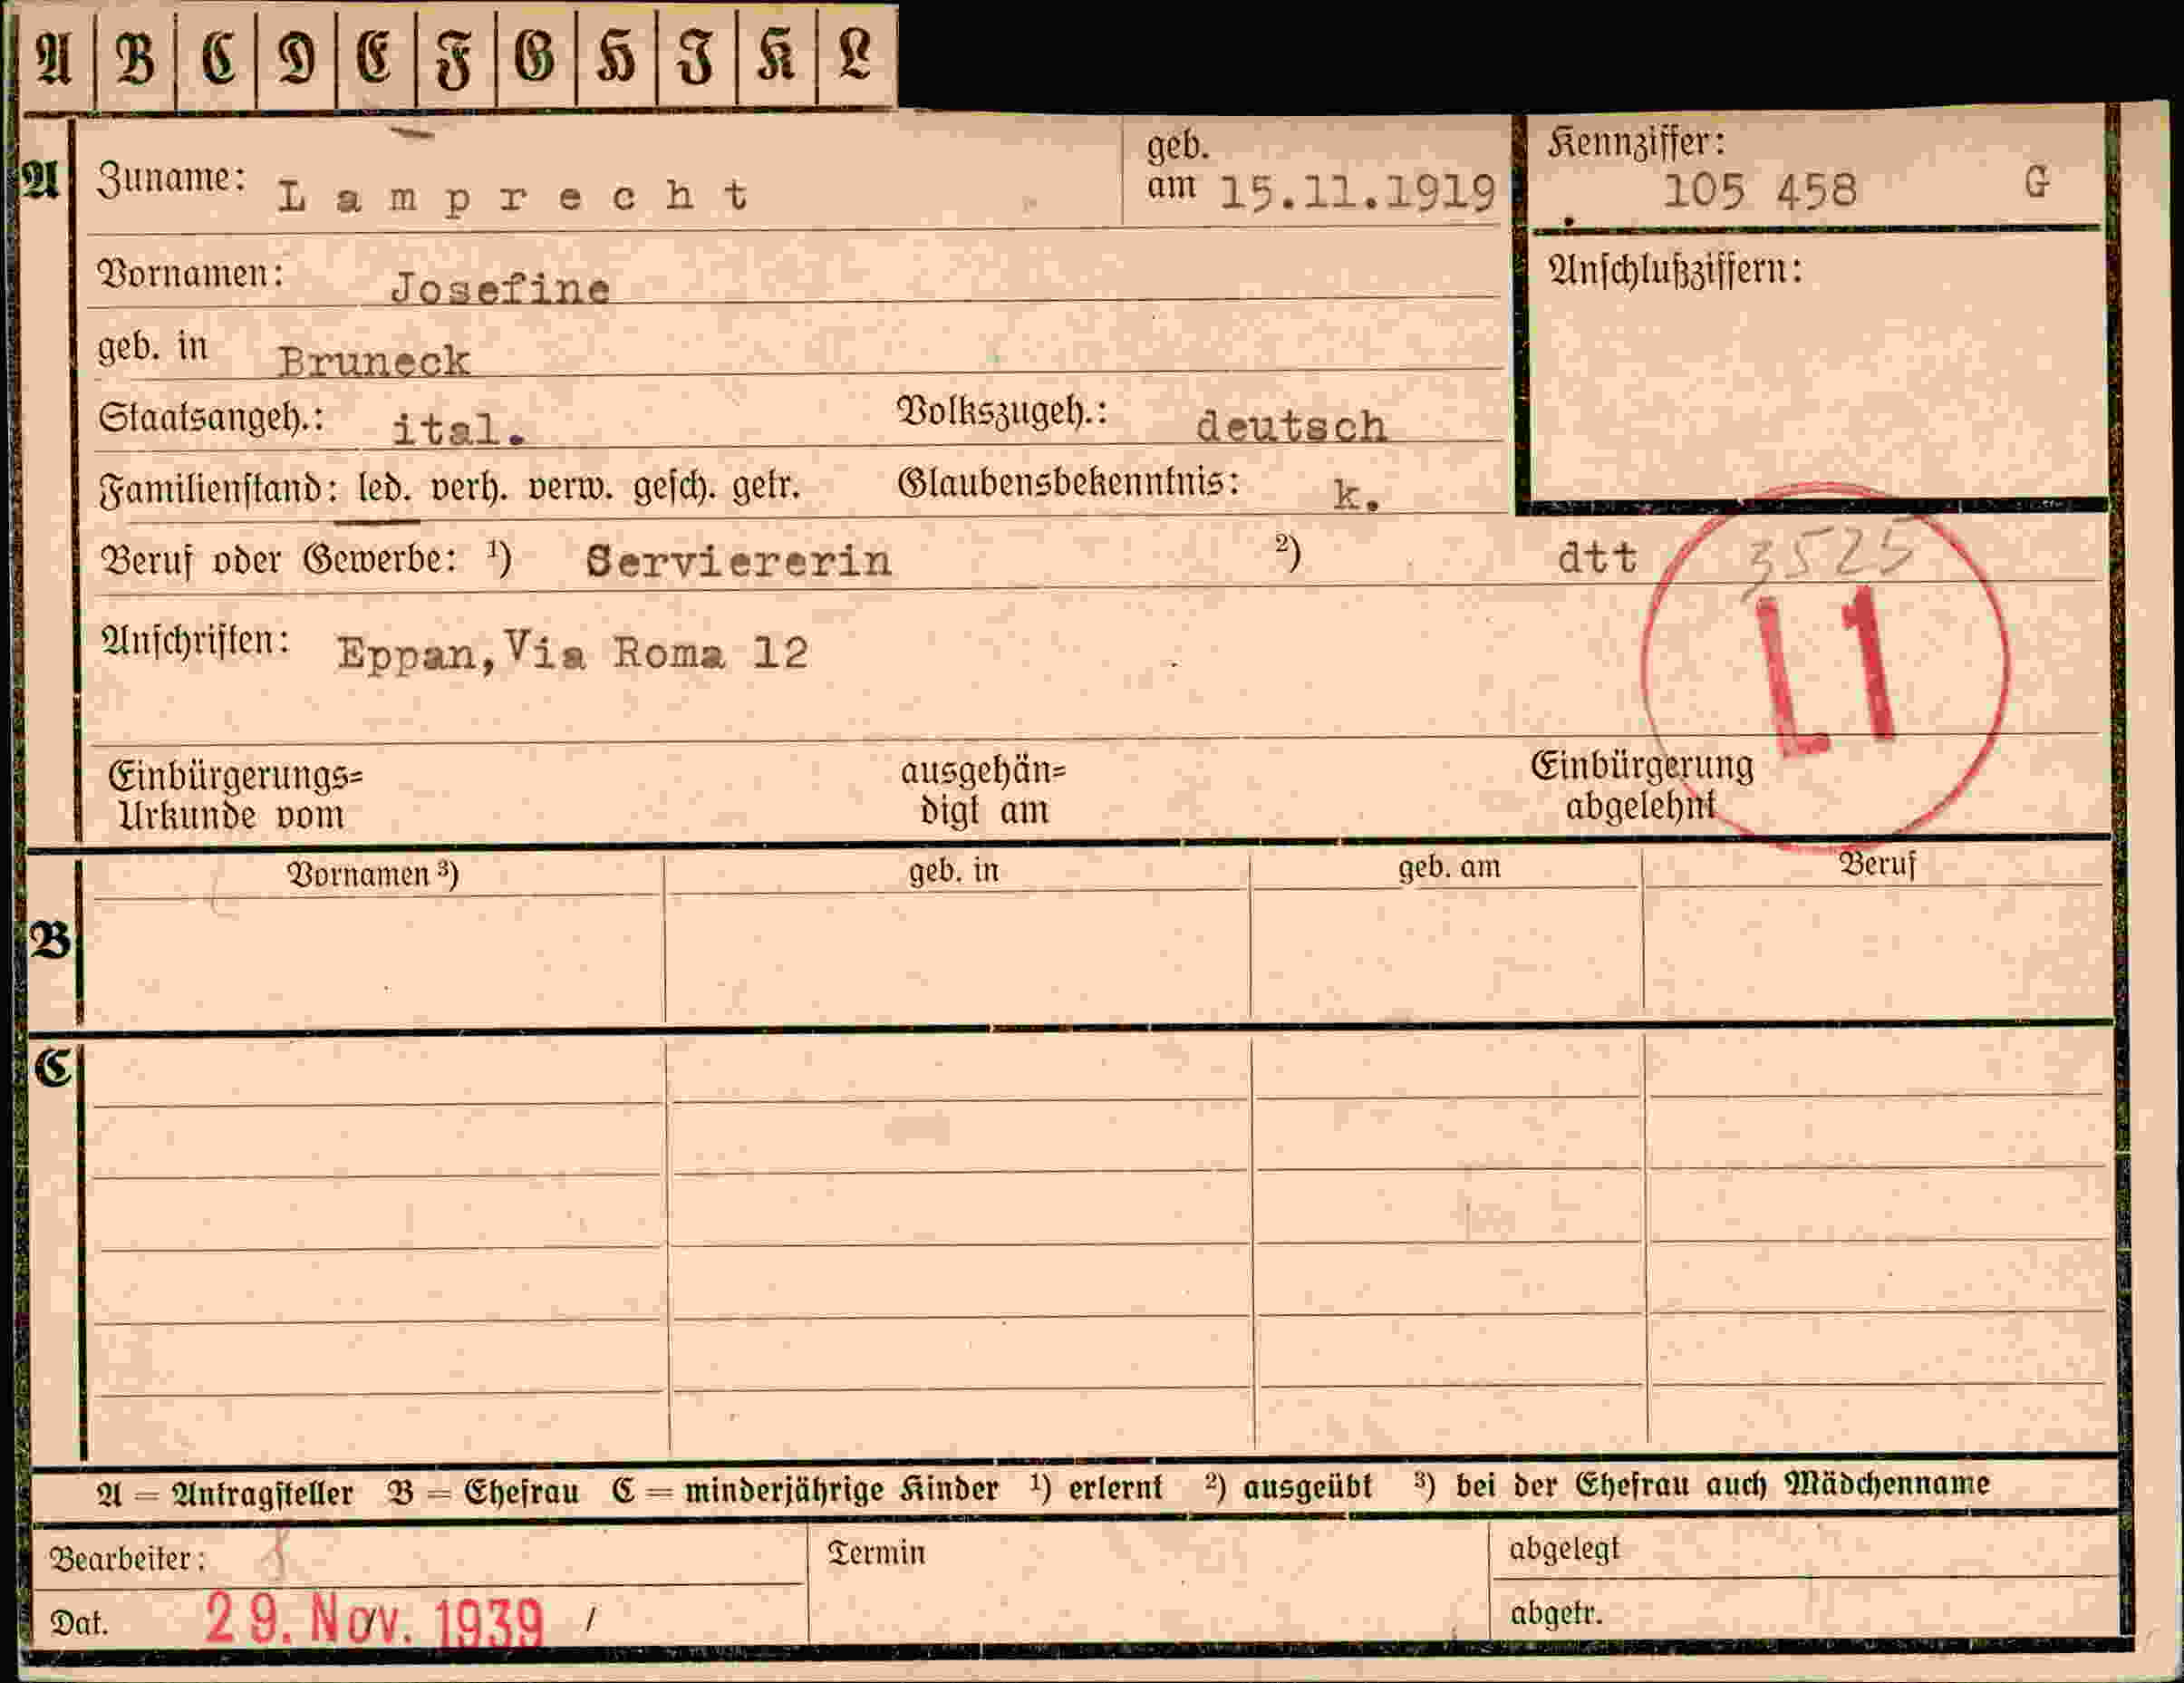 A B C D E F G H I K L
A Zuname: Lamprecht geb. am 15.11.1919 Kennziffer: 105 458 G
Vornamen: Josefine Anschlußziffern:
geb. in Bruneck
Staatsangeh.: ital. Volkszugeh.: deutsch
Familienstand: led. verh. verw. gesch. getr. Glaubensbekenntnis: k.
Beruf oder Gewerbe: ¹) Serviererin ²) dtt 3525
Anschriften: Eppan, Via Roma 12 L1
Einbürgerungs= ausgehän= Einbürgerung
Urkunde vom digt am abgelehnt
Vornamen ³) geb. in geb. am Beruf
B
C
A = Antragsteller B = Ehefrau C = minderjährige Kinder ¹) erlernt ²) ausgeübt ³) bei der Ehefrau auch Mädchenname
Bearbeiter: Termin abgelegt
Dat. 29. Nov. 1939 / abgetr.